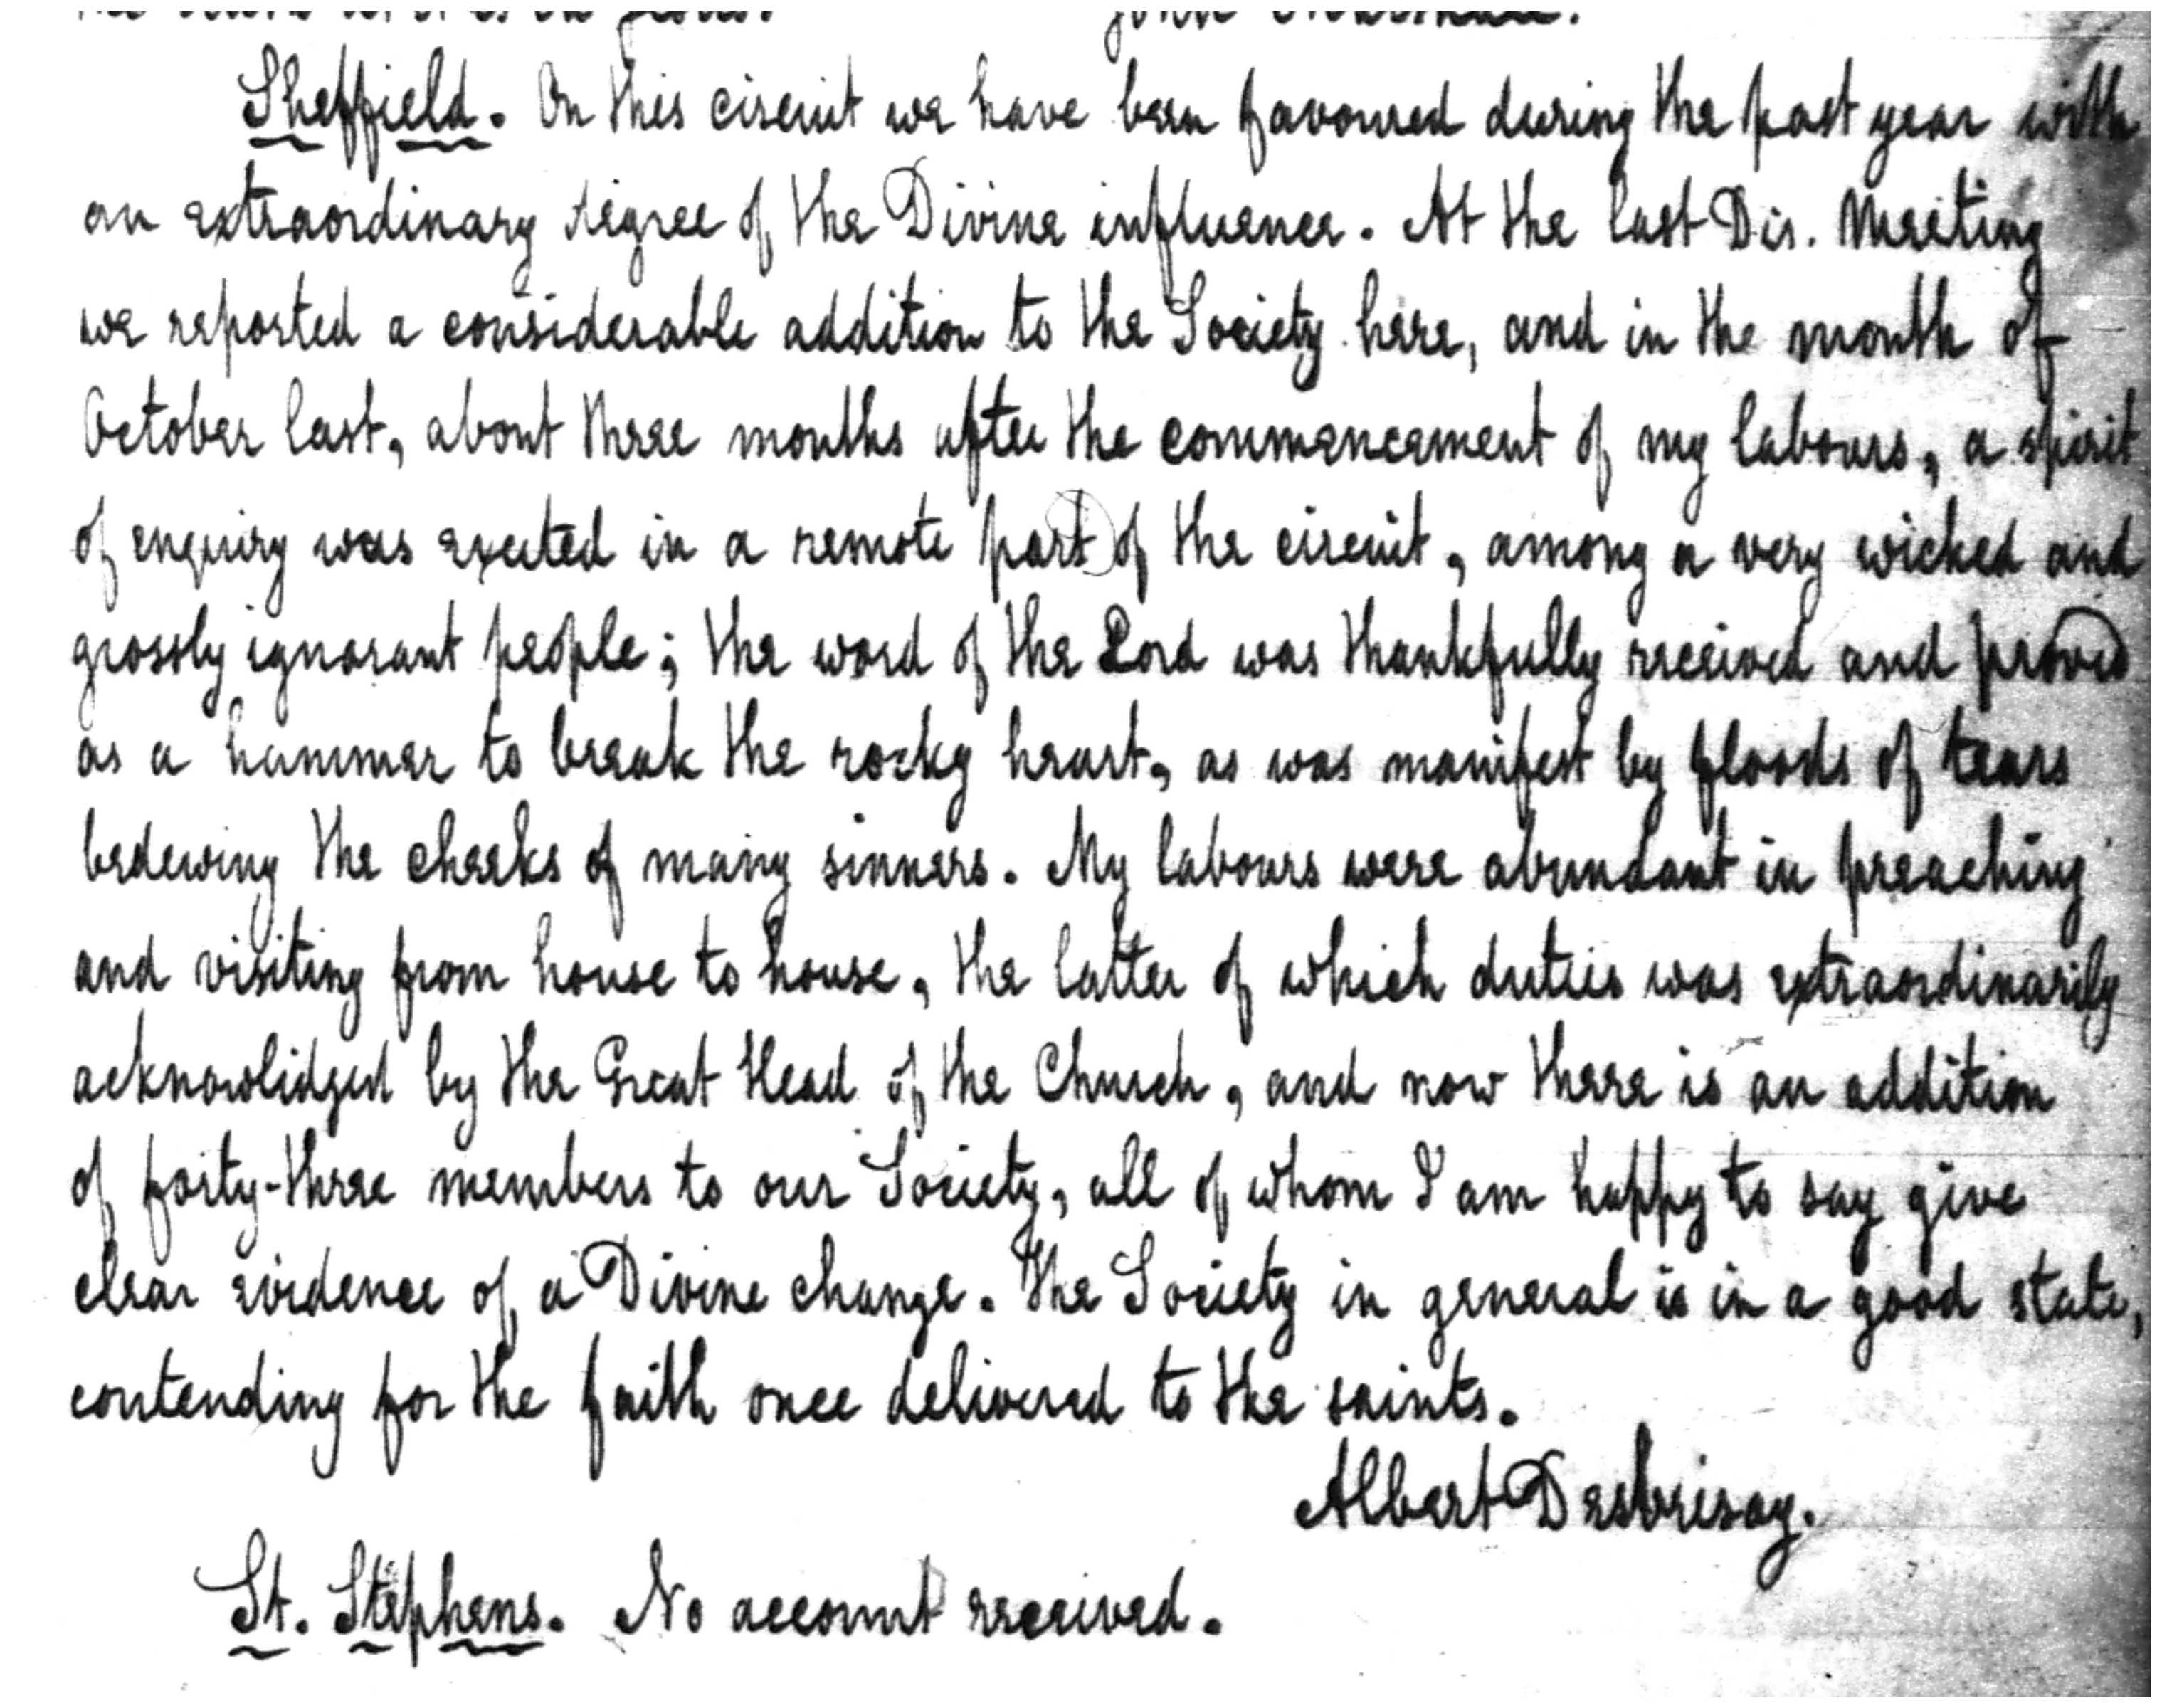 John
Sheffield. On this circuit we have been favoured during the past year with
an extraordinary degree of the Divine influence. At the last Dis. Meeting
we reported a considerable addition to the Society here, and in the month of
October last, about three months after the commencement of my labours, a spirit
of enquiry was excited in a remote part of the circuit, among a very wicked and
grossly ignorant people; the word of the Lord was thankfully received and proved
as a hammer to break the rocky heart, as was manifest by floods of tears
bedewing the cheeks of many sinners. My labours were abundant in preaching
and visiting from house to house, the latter of which duties was extraordinarily
acknowlidged by the Great Head of the Church, and now there is an addition
of forty-three members to our Society, all of whom I am happy to say give
clear evidence of a Divine change. The Society in general is in a good state,
contending for the faith once delivered to the saints.
Albert Desbrisay.
St. Stephens. No account received.